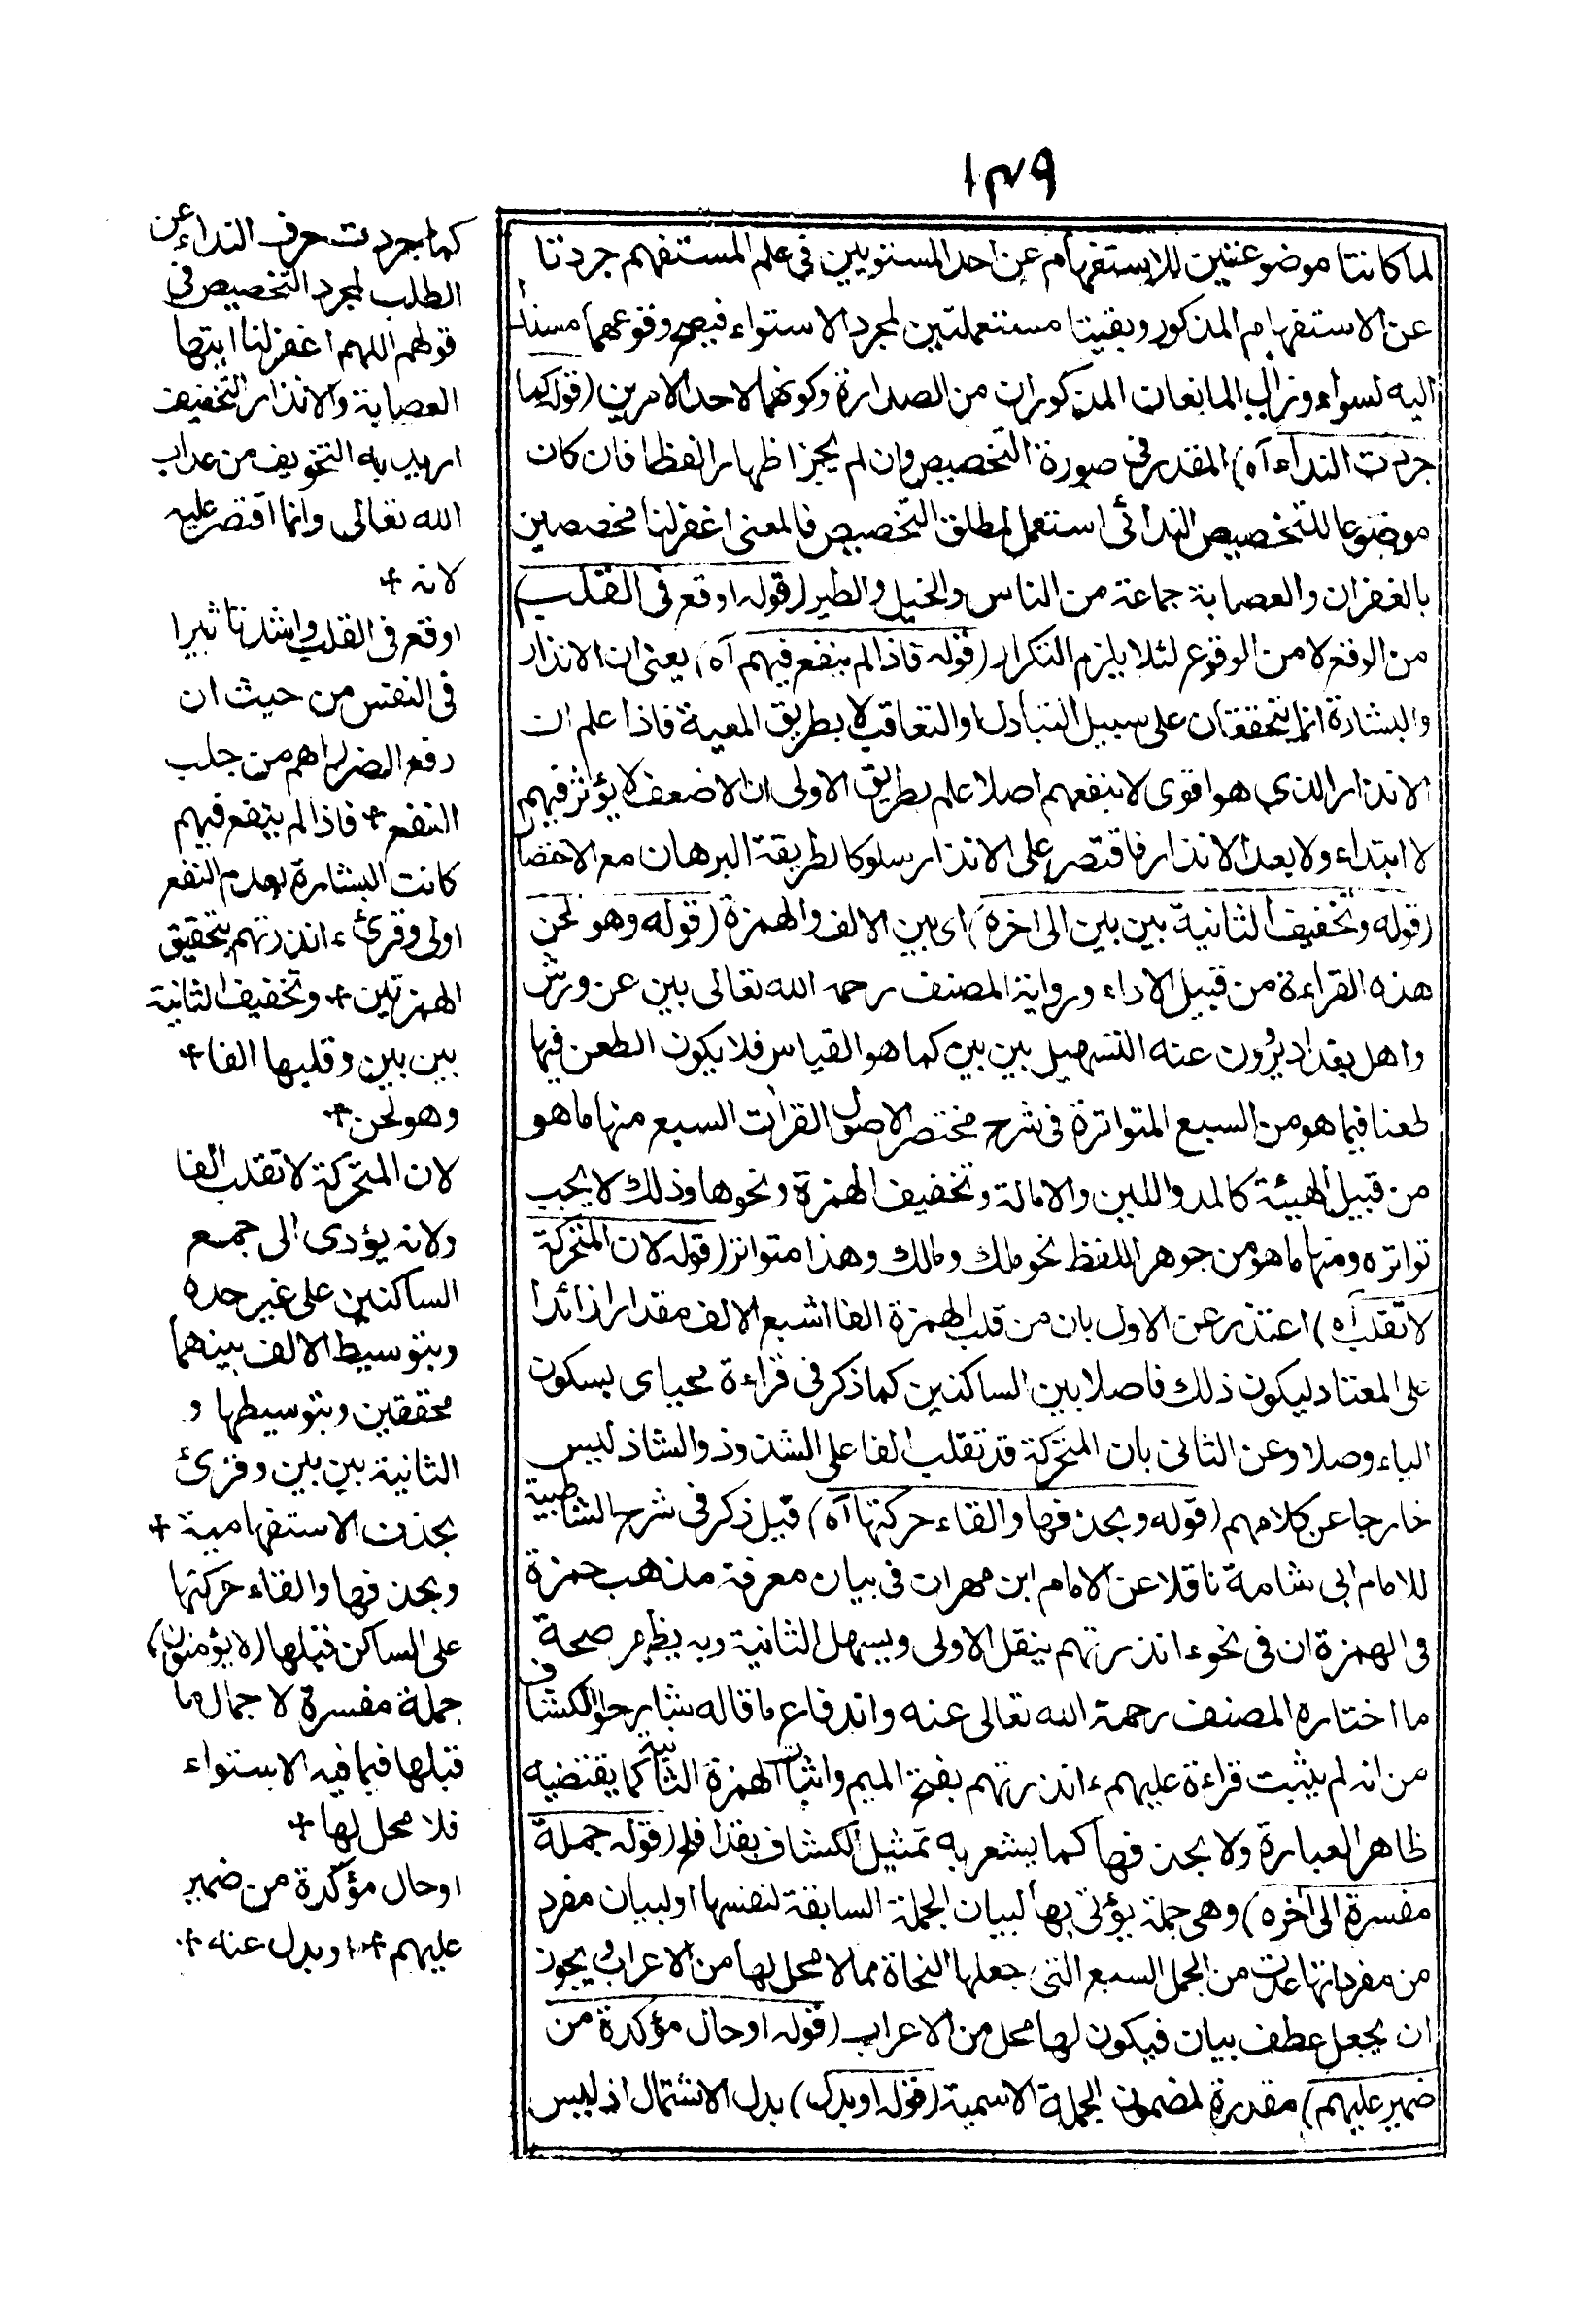 ١٣٩
لما كانتا موضوعتين للاستفهام عن احد المستويين فى علم المستفهم جردتا
عن الاستفهام المذكور وبقيتا مستعملتين لمجرد الاستواء فيصح وقوعهما مسندا
اليه لسواء وزال المانعان المذكوران من الصدارة وكونهما لاحد الامرين (قوله كما
جردت النداء آه) المقدر فى صورة التخصيص وان لم يجز اظهار لفظا فان كان
موضوعا للتخصيص الندائى استعمل لمطلق التخصيص فالمعنى اغفر لنا مخصصين
بالغفران والعصابة جماعة من الناس والخيل والطير (قوله اوقع فى القلب)
من الوقع لا من الوقوع لئلا يلزم التكرار (قوله فاذا لم ينفع فيهم آه) يعنى ان الانذار
والبشارة انما يتحققان على سبيل التبادل والتعاقب لا بطريق المعية فاذا علم ان
الانذار الذى هو اقوى لا ينفعهم اصلا علم بطريق الاولى ان الاضعف لا يؤثر فيهم
لا ابتداء ولا بعد الانذار فاقتصر على الانذار سلوكا لطريقة البرهان مع الاختصا
(قوله وتخفيف الثانية بين بين الى اخره) اى بين الالف والهمزة (قوله وهو لحن
هذه القراءة من قبيل الاداء ورواية المصنف رحمه الله تعالى بين عن ورش
واهل بغداد يرون عنه التسهيل بين بين كما هو القياس فلا يكون الطعن فيها
طعنا فيما هو من السبع المتواترة فى شرح مختصر الاصول القرات السبع منها ما هو
من قبيل الهيئة كالمد واللين والامالة وتخفيف الهمزة ونحوها وذلك لا يجب
تواتره ومنها ما هو من جوهر اللفظ نحو ملك ومالك وهذا متواتر (قوله لان المتحركة
لا تقلب آه) اعتذر عن الاول بان من قلب الهمزة الفا اشبع الالف مقدارا زائدا
على المعتاد ليكون ذلك فاصلا بين الساكنين كما ذكر فى قراءة محياى بسكون
الياء وصلا وعن الثانى بان المتحركة قد تقلب الفا على الشذوذ والشاذ ليس
خارجا عن كلامهم (قوله وبحذفها والقاء حركتها آه) قيل ذكر فى شرح الشاطبية
للامام ابى شامة ناقلا عن الامام ابن مهران فى بيان معرفة مذهب حمزة
فى الهمزة ان فى نحو ءانذرتهم ينقل الاولى ويسهل الثانية وبه يظهر صحة
ما اختاره المصنف رحمة الله تعالى عنه واندفاع ما قاله شارحوا الكشاف
من انه لم يثبت قراءة عليهم ءانذرتهم بفتح الميم واثبات الهمزة الثانية كما يقتضيه
ظاهر العبارة ولا بحذفها كما يشعر به تمثيل الكشاف بقد افلح (قوله جملة
مفسرة الى آخره) وهى جملة يؤتى بها لبيان الجملة السابقة لنفسها او لبيان مفرد
من مفرداتها عدت من الجمل السبع التى جعلها النحاة مما لا محل لها من الاعراب ويجوز
ان يجعل عطف بيان فيكون لها محل من الاعراب (قوله او حال مؤكدة من
ضمير عليهم) مقدرة لمضمون الجملة الاسمية (قوله او بدل) بدل الاشتمال اذ ليس
كما جردت حرف النداء عن
الطلب لمجرد التخصيص فى
قولهم اللهم اغفر لنا ايتها
العصابة والانذار التخفيف
اريد به التخويف من عذاب
الله تعالى وانما اقتصر عليه
لانه +
اوقع فى القلب واشد تاثيرا
فى النفس من حيث ان
دفع الضرر اهم من جلب
النفع + فاذا لم ينفع فيهم
كانت البشارة بعدم النفع
اولى وقرئ ءانذرتهم بتحقيق
الهمزتين + وتخفيف الثانية
بين بين وقلبها الفا +
وهو لحن +
لان المتحركة لا تقلب الفا
ولانه يؤدى الى جمع
الساكنين على غير حده
وبتوسيط الالف بينهما
محققين وبتوسيطها و
الثانية بين بين وقرئ
بحذف الاستفهامية +
وبحذفها والقاء حركتها
على الساكن قبلها (لا يؤمنون)
جملة مفسرة لاجمال ما
قبلها فيما فيه الاستواء
فلا محل لها +
او حال مؤكدة من ضمير
عليهم + او بدل عنه +